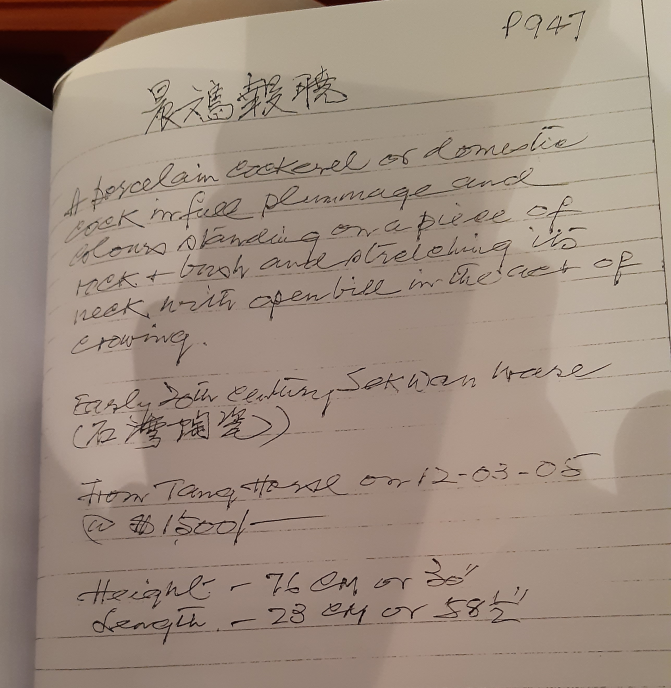 P947
晨 報曉
A porcelain cockerel or domestic
cock in full plummage and
colours standing on a piece of
rock + bush and stretching its
neck with open bill in the act of
crowing.
Early 20th century SekWan ware
(石灣陶瓷)
From Tang Horse on 12-03-05
@ $1500/-
Height - 76 CM or 30"
Length - 23 CM or 58½"